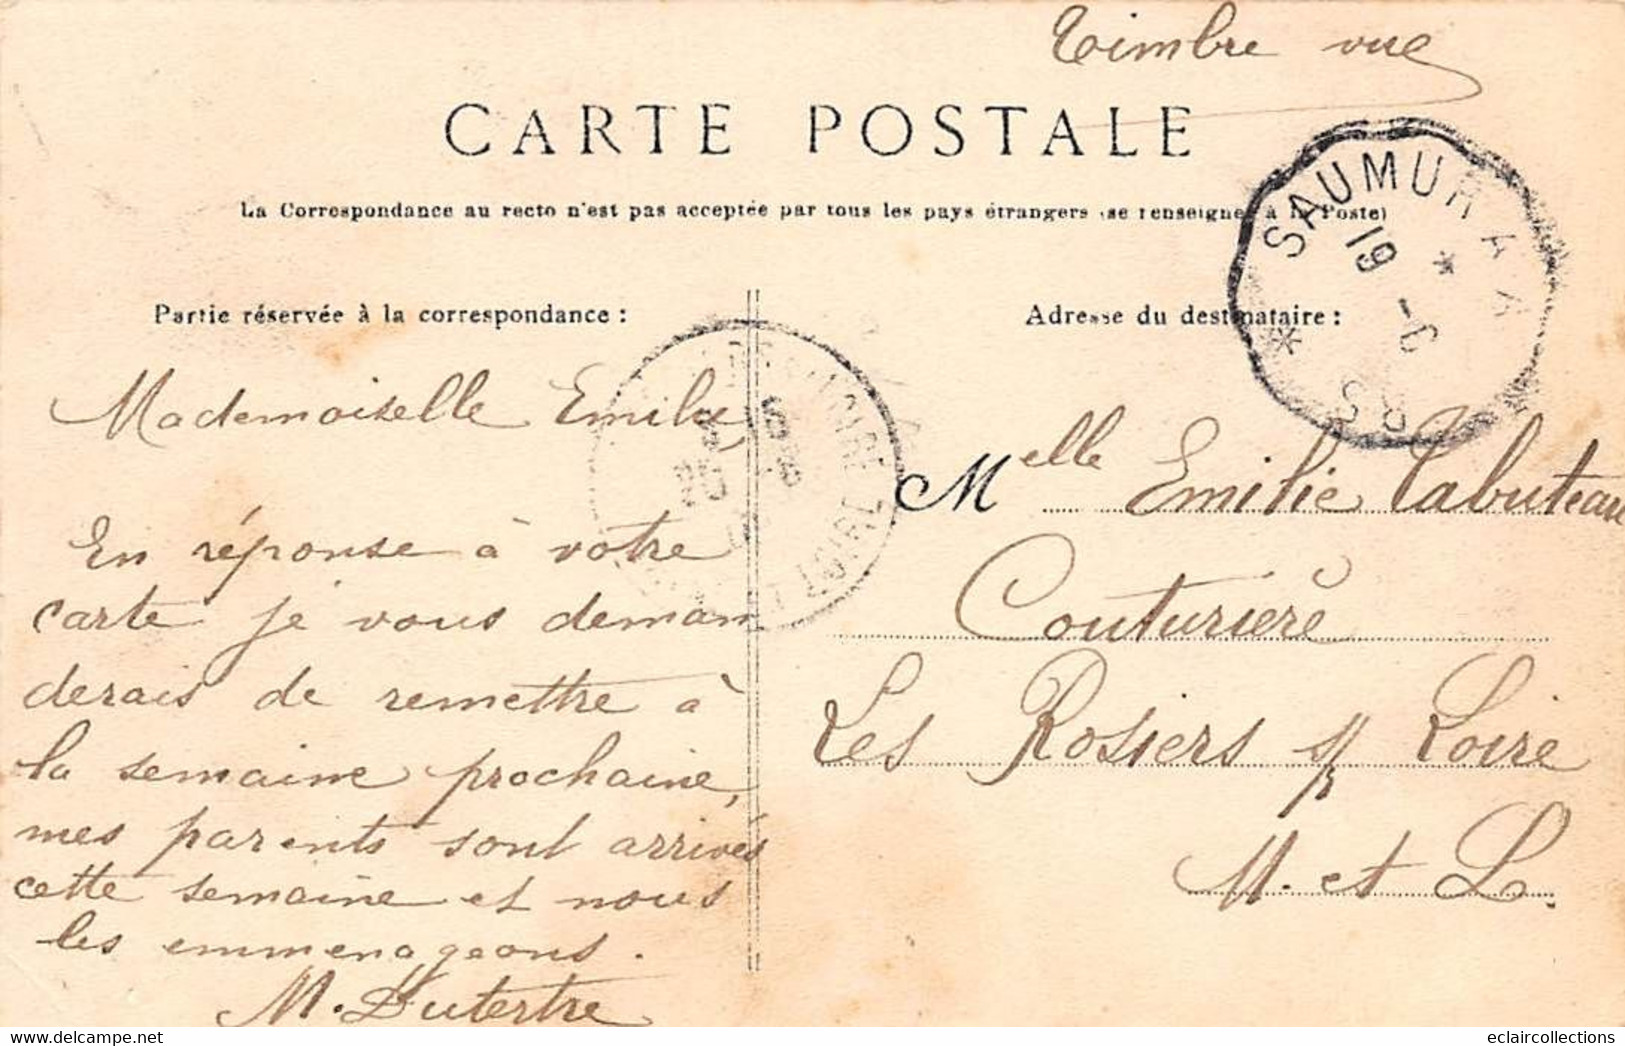 Timbre vue
CARTE POSTALE
La Correspondance au recto n'est pas acceptée par tous les pays étrangers (se renseigner à la Poste)
SAUMUR A A
19
Partie réservée à la correspondance :
Adresse du destinataire :
Mademoiselle Emilie
En réponse à votre
carte je vous deman
derais de remettre à
la semaine prochaine,
mes parents sont arrivés
cette semaine et nous
les emmenageons.
M. Dutertre
Melle Emilie Tabuteau
Couturière
Les Rosiers s/ Loire
M. et L.
LOIRE
eclaircollections